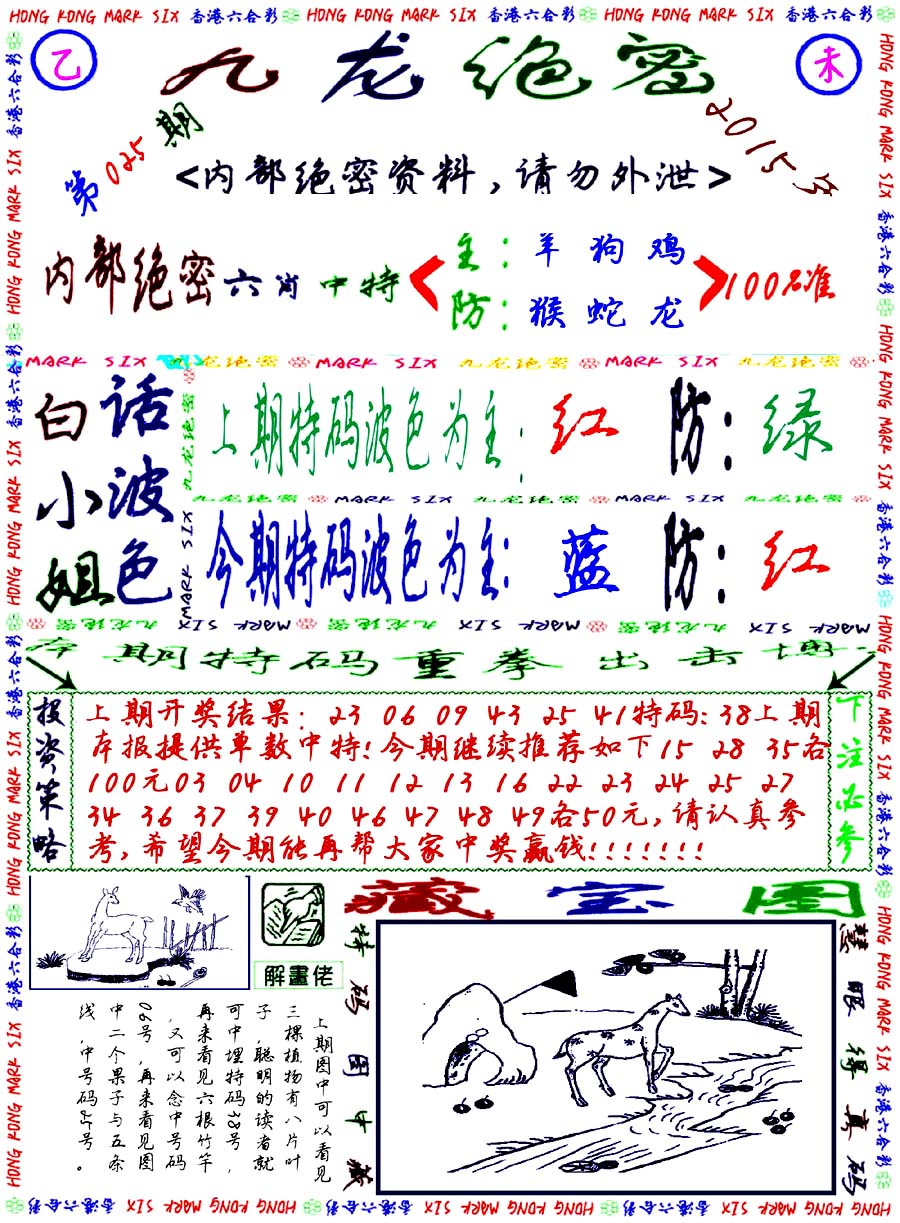 HONG KONG MARK SIX 香港六合彩 HONG KONG MARK SIX 香港六合彩 HONG KONG MARK SIX 香港六合彩
乙
九龙绝密
未
第025期
2015年
<内部绝密资料,请勿外泄>
内部绝密六肖中特
主:羊 狗 鸡
防:猴 蛇 龙
100%准
MARK SIX 九龙绝密 MARK SIX 九龙绝密 MARK SIX 九龙绝密
白话小波姐色
上期特码波色为主:红 防:绿
九龙绝密 MARK SIX 九龙绝密 MARK SIX 九龙绝密
今期特码波色为主:蓝 防:红
九龙绝密 MARK SIX 九龙绝密 MARK SIX 九龙绝密 MARK SIX
本期特码重拳出击博
投资策略
上期开奖结果:23 06 09 43 25 41特码:38上期
本报提供单数中特!今期继续推荐如下15 28 35各
100元03 04 10 11 12 13 16 22 23 24 25 27
34 36 37 39 40 46 47 48 49各50元,请认真参
考,希望今期能再帮大家中奖赢钱!!!!!!!
下注必参
解畫佬
藏宝图
特码图中藏
慧眼得真码
上期图中可以看见
三棵植物有八片叶
子,聪明的读者就
可中埋特码38号,
再来看见六根竹竿
,又可以念中号码
06号,再来看见图
中二个果子与五条
线,中号码25号。
HONG KONG MARK SIX 香港六合彩 HONG KONG MARK SIX 香港六合彩 HONG KONG MARK SIX 香港六合彩